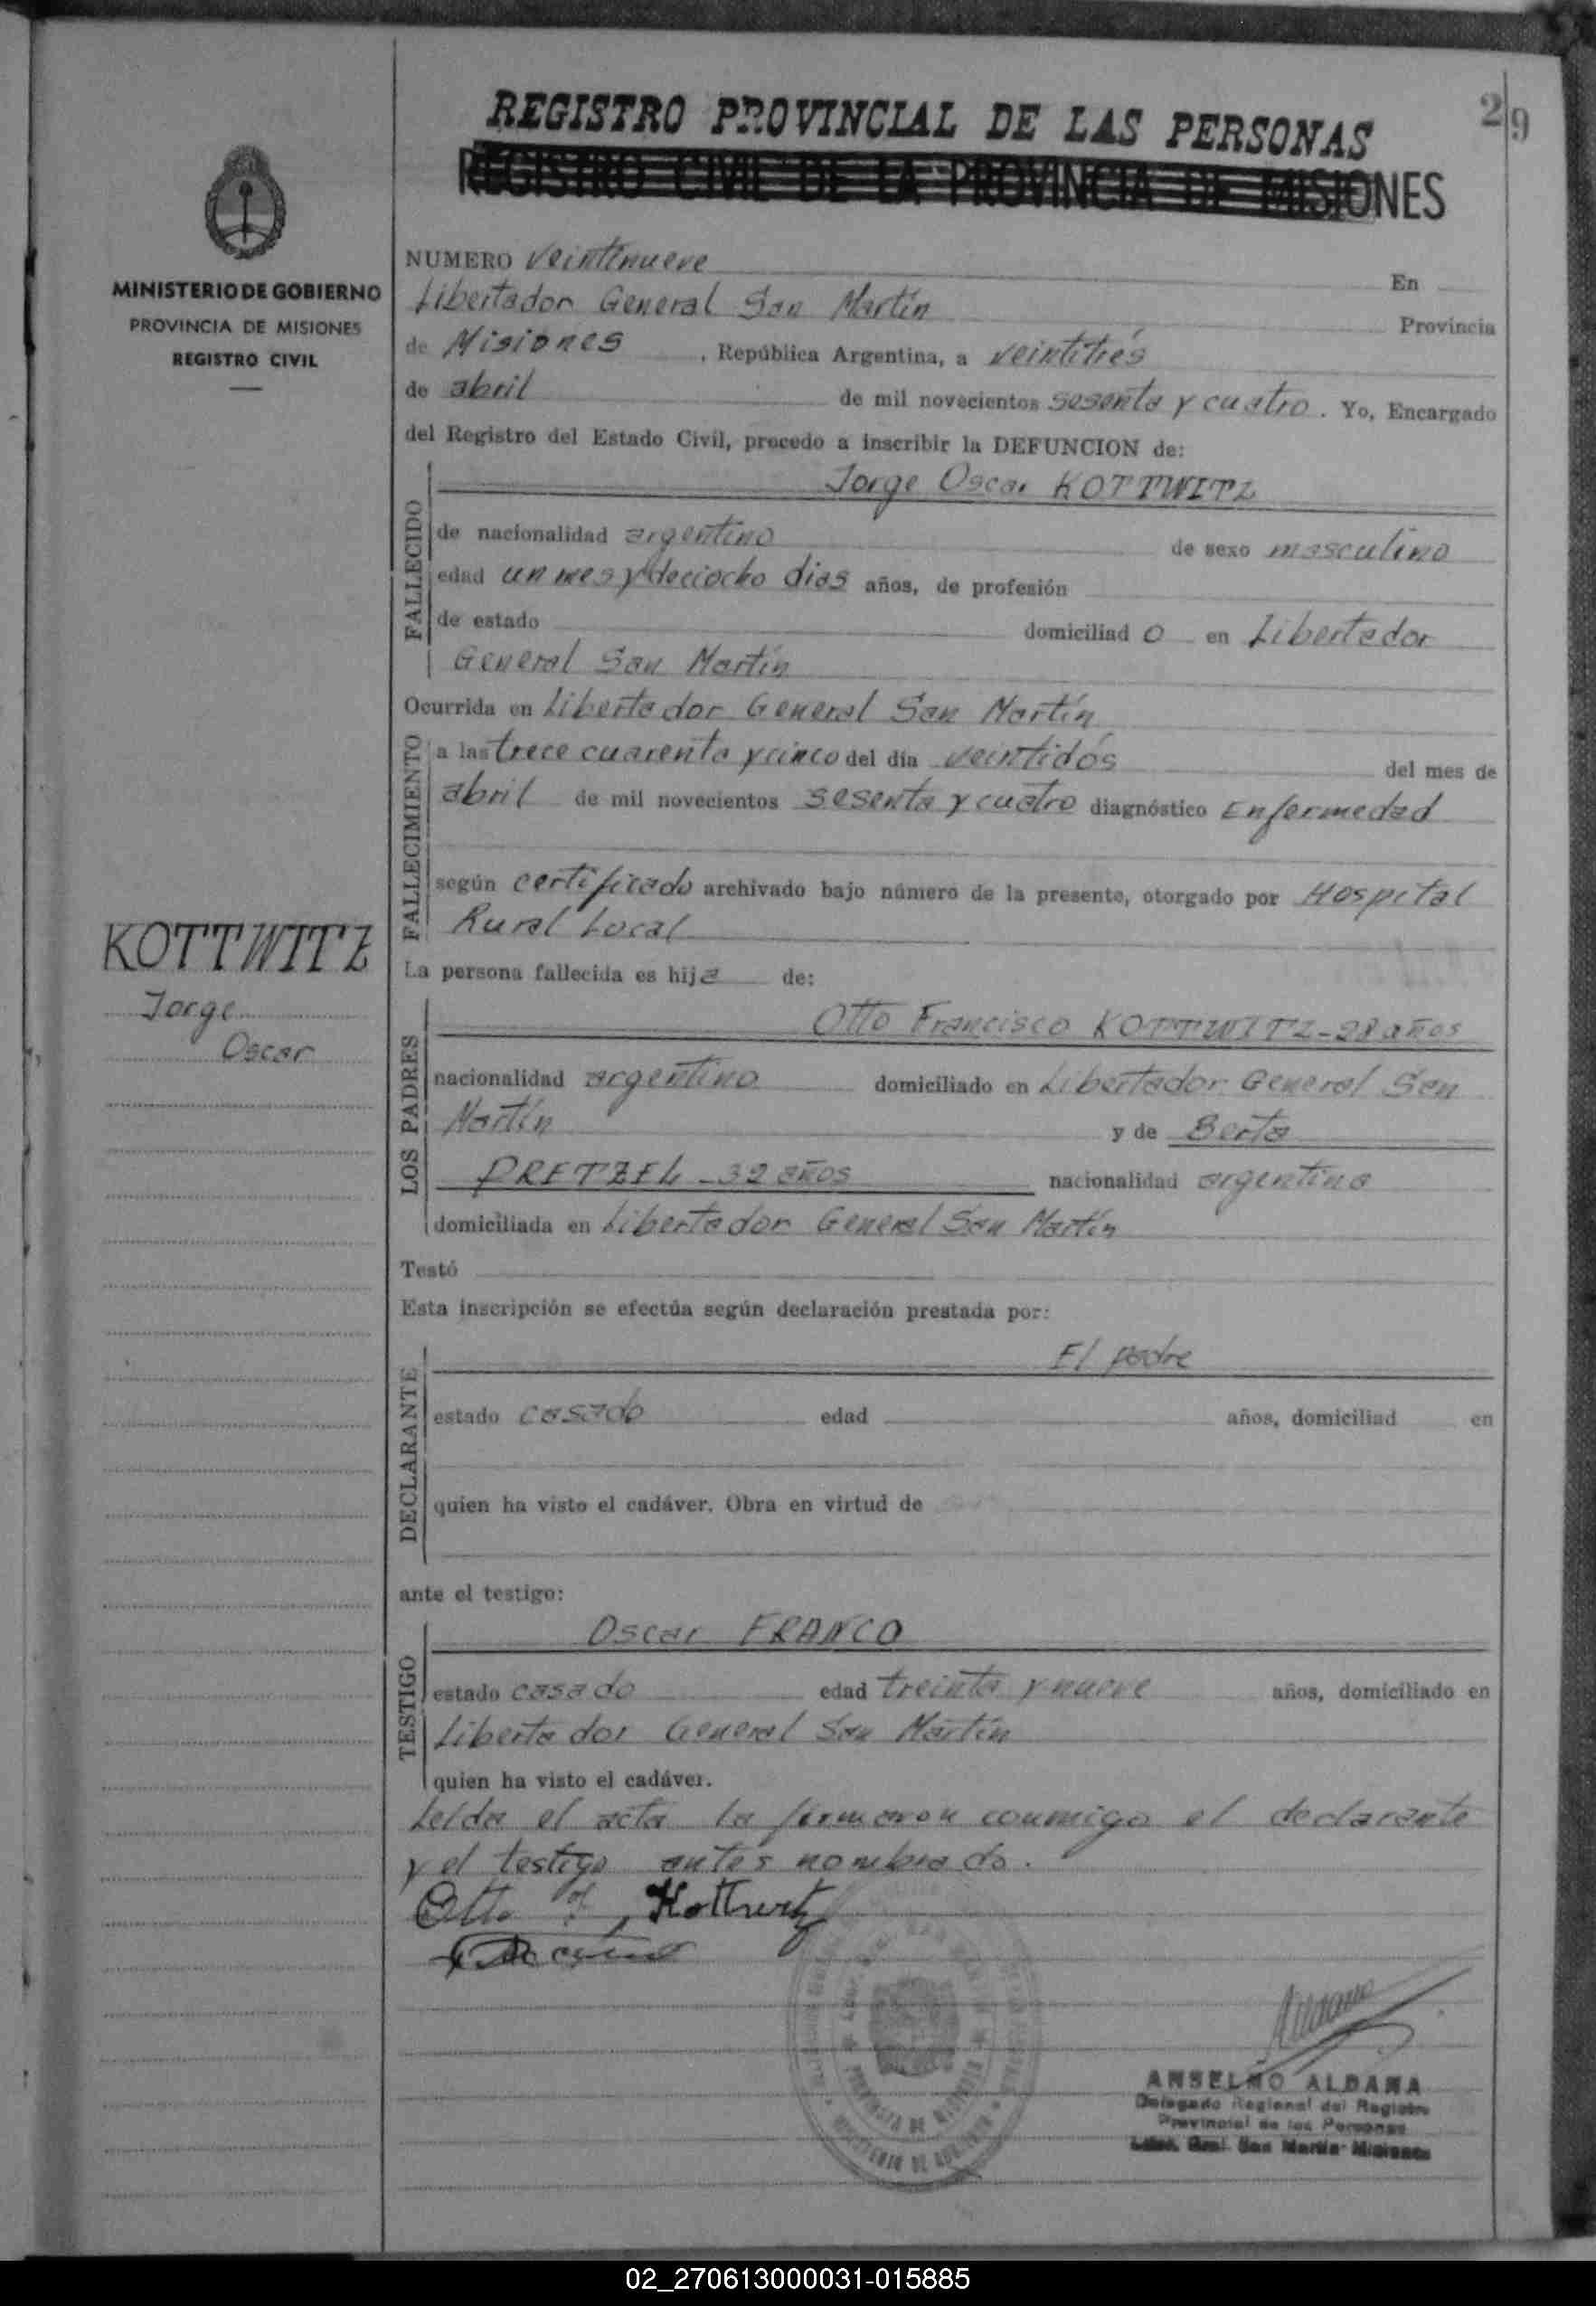 29
REGISTRO PROVINCIAL DE LAS PERSONAS
REGISTRO CIVIL DE LA PROVINCIA DE MISIONES
MINISTERIO DE GOBIERNO
PROVINCIA DE MISIONES
REGISTRO CIVIL
NUMERO veintinueve En
Libertador General San Martín Provincia
de Misiones, República Argentina, a veintitrés
de abril de mil novecientos sesenta y cuatro. Yo, Encargado
del Registro del Estado Civil, procedo a inscribir la DEFUNCION de:
Jorge Oscar KOTTWITZ
FALLECIDO
de nacionalidad argentino de sexo masculino
edad un mes y dieciocho dias años, de profesión
de estado domiciliad o en Libertador
General San Martín
Ocurrida en Libertador General San Martín
FALLECIMIENTO
a las trece cuarenta y cinco del día veintidós del mes de
abril de mil novecientos sesenta y cuatro diagnóstico Enfermedad
según certificado archivado bajo número de la presente, otorgado por Hospital
Rural Local
KOTTWITZ
Jorge
Oscar
La persona fallecida es hija de:
LOS PADRES
Otto Francisco KOTTWITZ - 28 años
nacionalidad argentino domiciliado en Libertador General San
Martín y de Berta
PRETZEL - 32 años nacionalidad argentina
domiciliada en Libertador General San Martín
Testó
Esta inscripción se efectúa según declaración prestada por:
DECLARANTE
El padre
estado casado edad años, domiciliad en
quien ha visto el cadáver. Obra en virtud de
ante el testigo:
TESTIGO
Oscar FRANCO
estado casado edad treinta y nueve años, domiciliado en
Libertador General San Martín
quien ha visto el cadáver.
Leída el acta la firmaron conmigo el declarante
y el testigo antes nombrado.
Otto F. Kottwitz
ANSELMO ALDANA
Delegado Regional del Registro
Provincial de las Personas
Libor. Gral. San Martín - Misiones
02_270613000031-015885